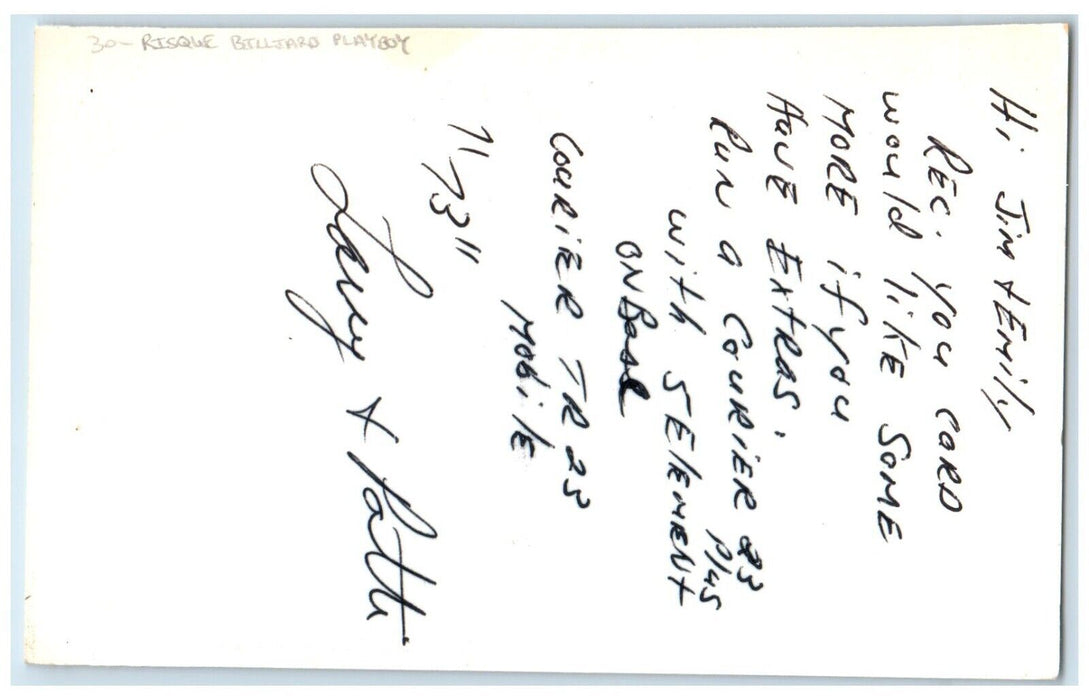 30- RISQUE BILLIARD PLAYBOY
Hi Jim & EMily
REC. you CARD
would likE SOME
MORE if you
HAVE ExtRas.
Run a COURiER 23 Plus
with 5 ElEMENt
ON Base
COURiER TR 23
Mobile
73"
Larry & Patti